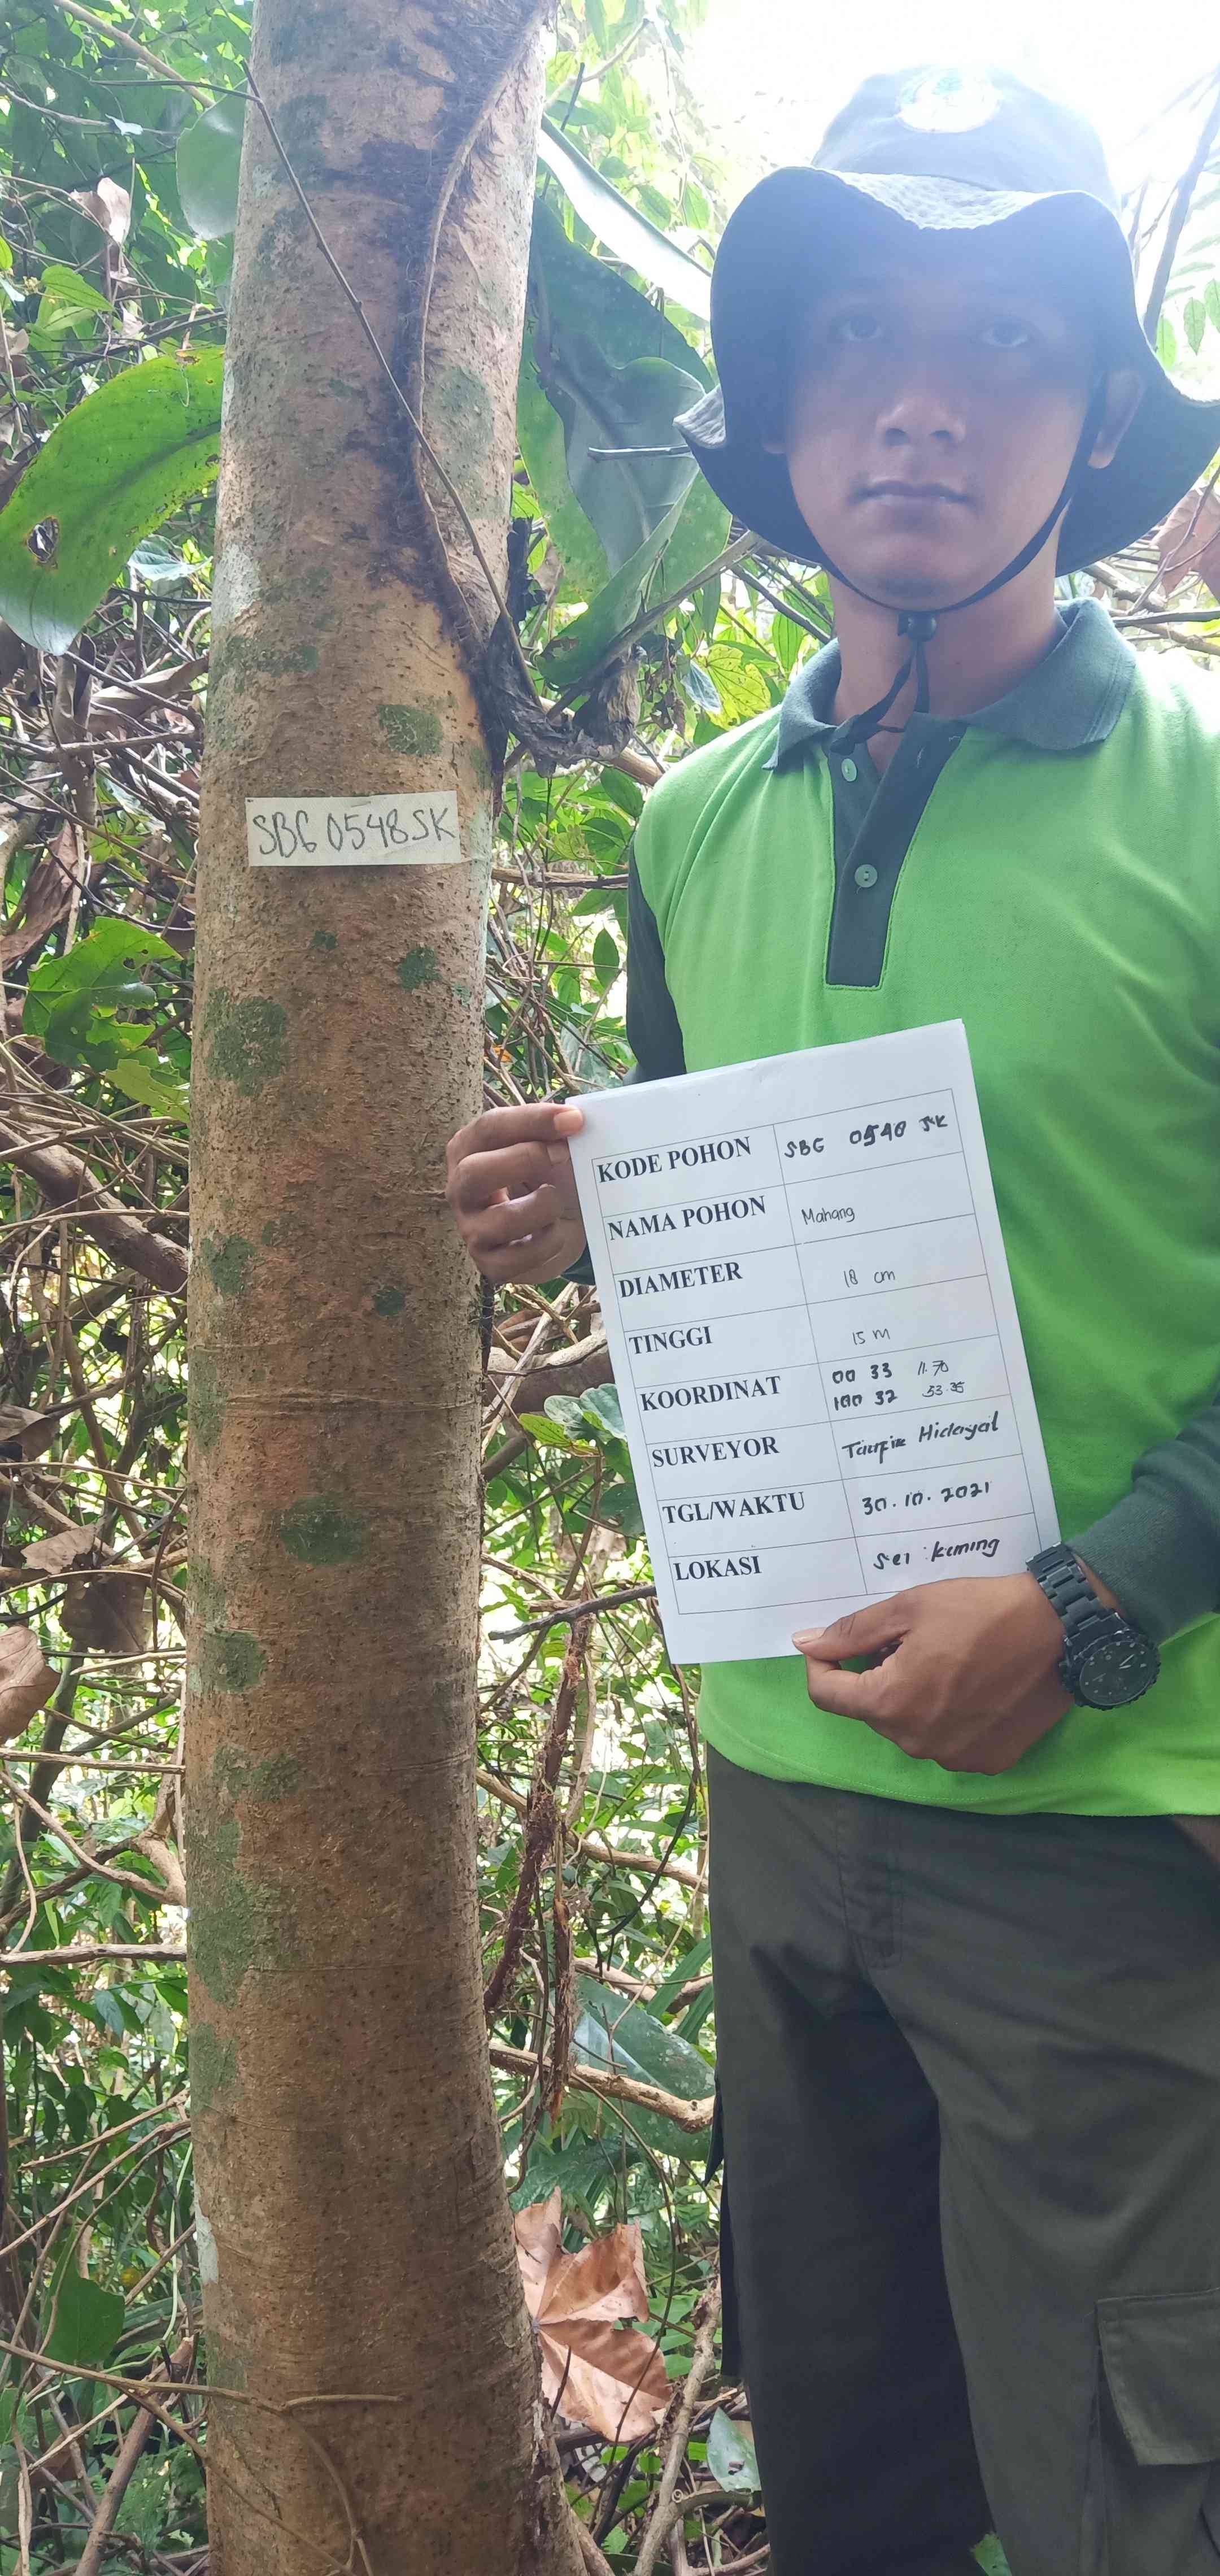 SBG 0548 SK
KODE POHON SBG 0548 SK
NAMA POHON Mahang
DIAMETER 18 cm
TINGGI 15 m
KOORDINAT 00 33 11.70
100 32 53.35
SURVEYOR Taufik Hidayat
TGL/WAKTU 30.10.2021
LOKASI Sei keming